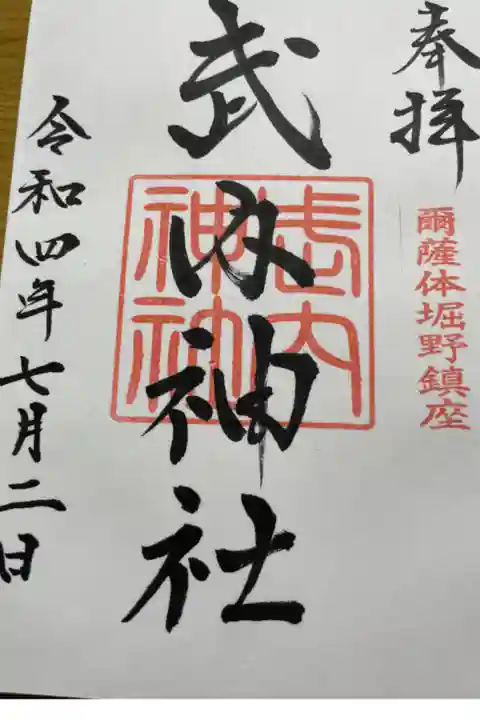 奉拝
爾薩体堀野鎮座
武内神社
武内
神社
令和四年七月二日